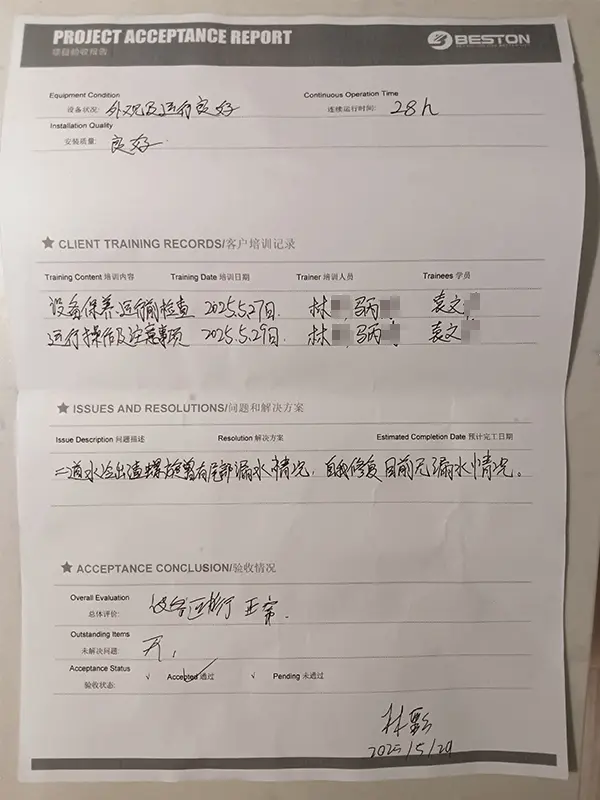 PROJECT ACCEPTANCE REPORT
项目验收报告
BESTON
Equipment Condition
设备状况: 外观及运行良好
Continuous Operation Time
连续运行时间: 28h
Installation Quality
安装质量: 良好
★ CLIENT TRAINING RECORDS/客户培训记录
Training Content 培训内容 Training Date 培训日期 Trainer 培训人员 Trainees 学员
设备保养.运行前检查 2025.5.27日. 林 马丙 袁文
运行操作及注意事项 2025.5.29日. 林 马丙 袁文
★ ISSUES AND RESOLUTIONS/问题和解决方案
Issue Description 问题描述 Resolution 解决方案 Estimated Completion Date 预计完工日期
二道水冷出渣螺旋曾有尾部漏水情况, 自我修复目前无漏水情况。
★ ACCEPTANCE CONCLUSION/验收情况
Overall Evaluation
总体评价: 设备运行正常.
Outstanding Items
未解决问题: 无,
Acceptance Status
验收状态: √ Accepted 通过 √ Pending 未通过
林
2025/5/29